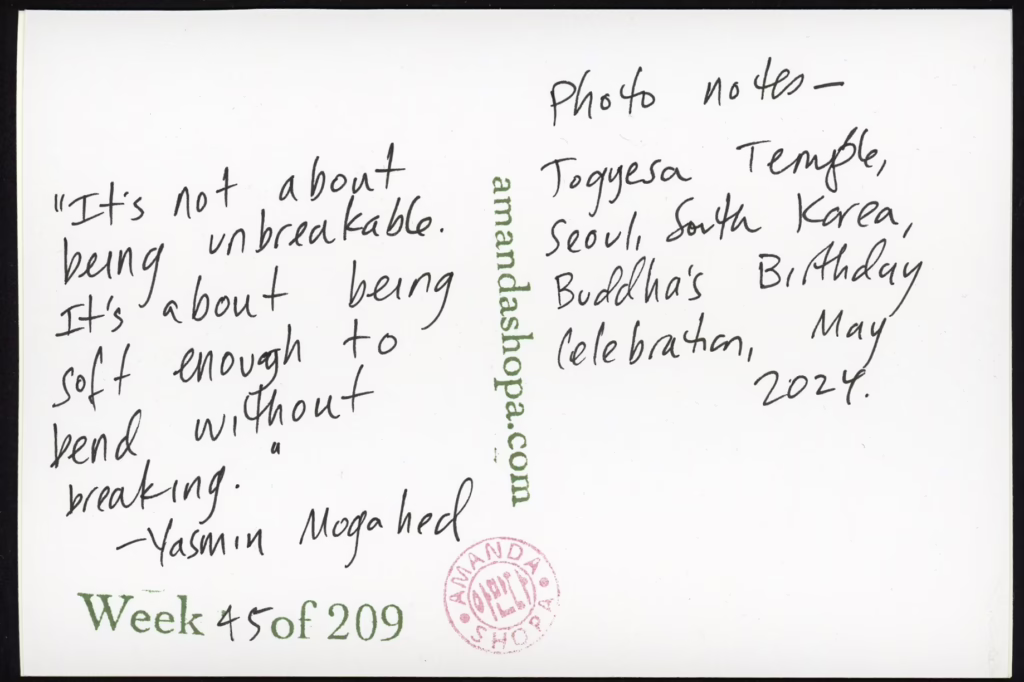 "It's not about
being unbreakable.
It's about being
soft enough to
bend without
breaking."
-Yasmin Mogahed
Week 45 of 209
amandashopa.com
AMANDA
아만다
SHOPA
Photo notes-
Jogyesa Temple,
Seoul, South Korea,
Buddha's Birthday
Celebration, May
2024.